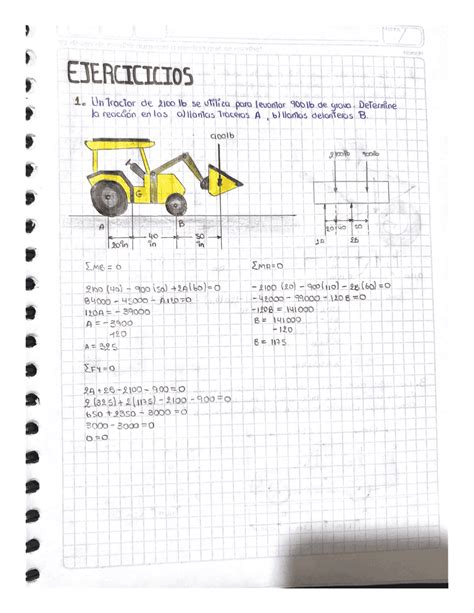 EJERCICICIOS
1. Un Tractor de 2100 lb se utiliza para levantar 900 lb de grava. Determine
la reacción en las a) llantas Traceras A, b) llantas delanteras B.
900lb
2100lb 900lb
G
A B
20in 40 in 50 in
20 40 50
2A 2B
ΣMB = 0
2100 (40) - 900 (50) + 2A(60) = 0
84000 - 45000 - A120 = 0
120A = - 39000
A = - 3900
120
A = 325
ΣMA = 0
- 2100 (20) - 900 (110) - 2B (60) = 0
- 42000 - 99000 - 120B = 0
- 120B = 141000
B = 141000
- 120
B = 1175
ΣFY = 0
2A + 2B - 2100 - 900 = 0
2 (325) + 2(1175) - 2100 - 900 = 0
650 + 2350 - 3000 = 0
3000 - 3000 = 0
0 = 0